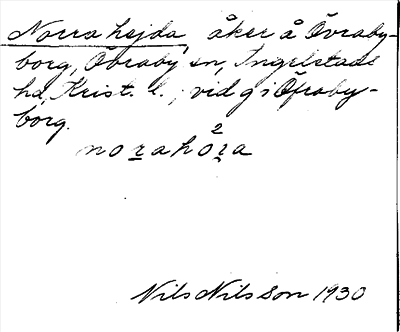 Norra hejda, åker å Övraby-
borg, Övraby sn, Ingelstads
hd, Krist. l.; vid g i Öfraby-
borg.
norahöra
2
Nils Nilsson 1930